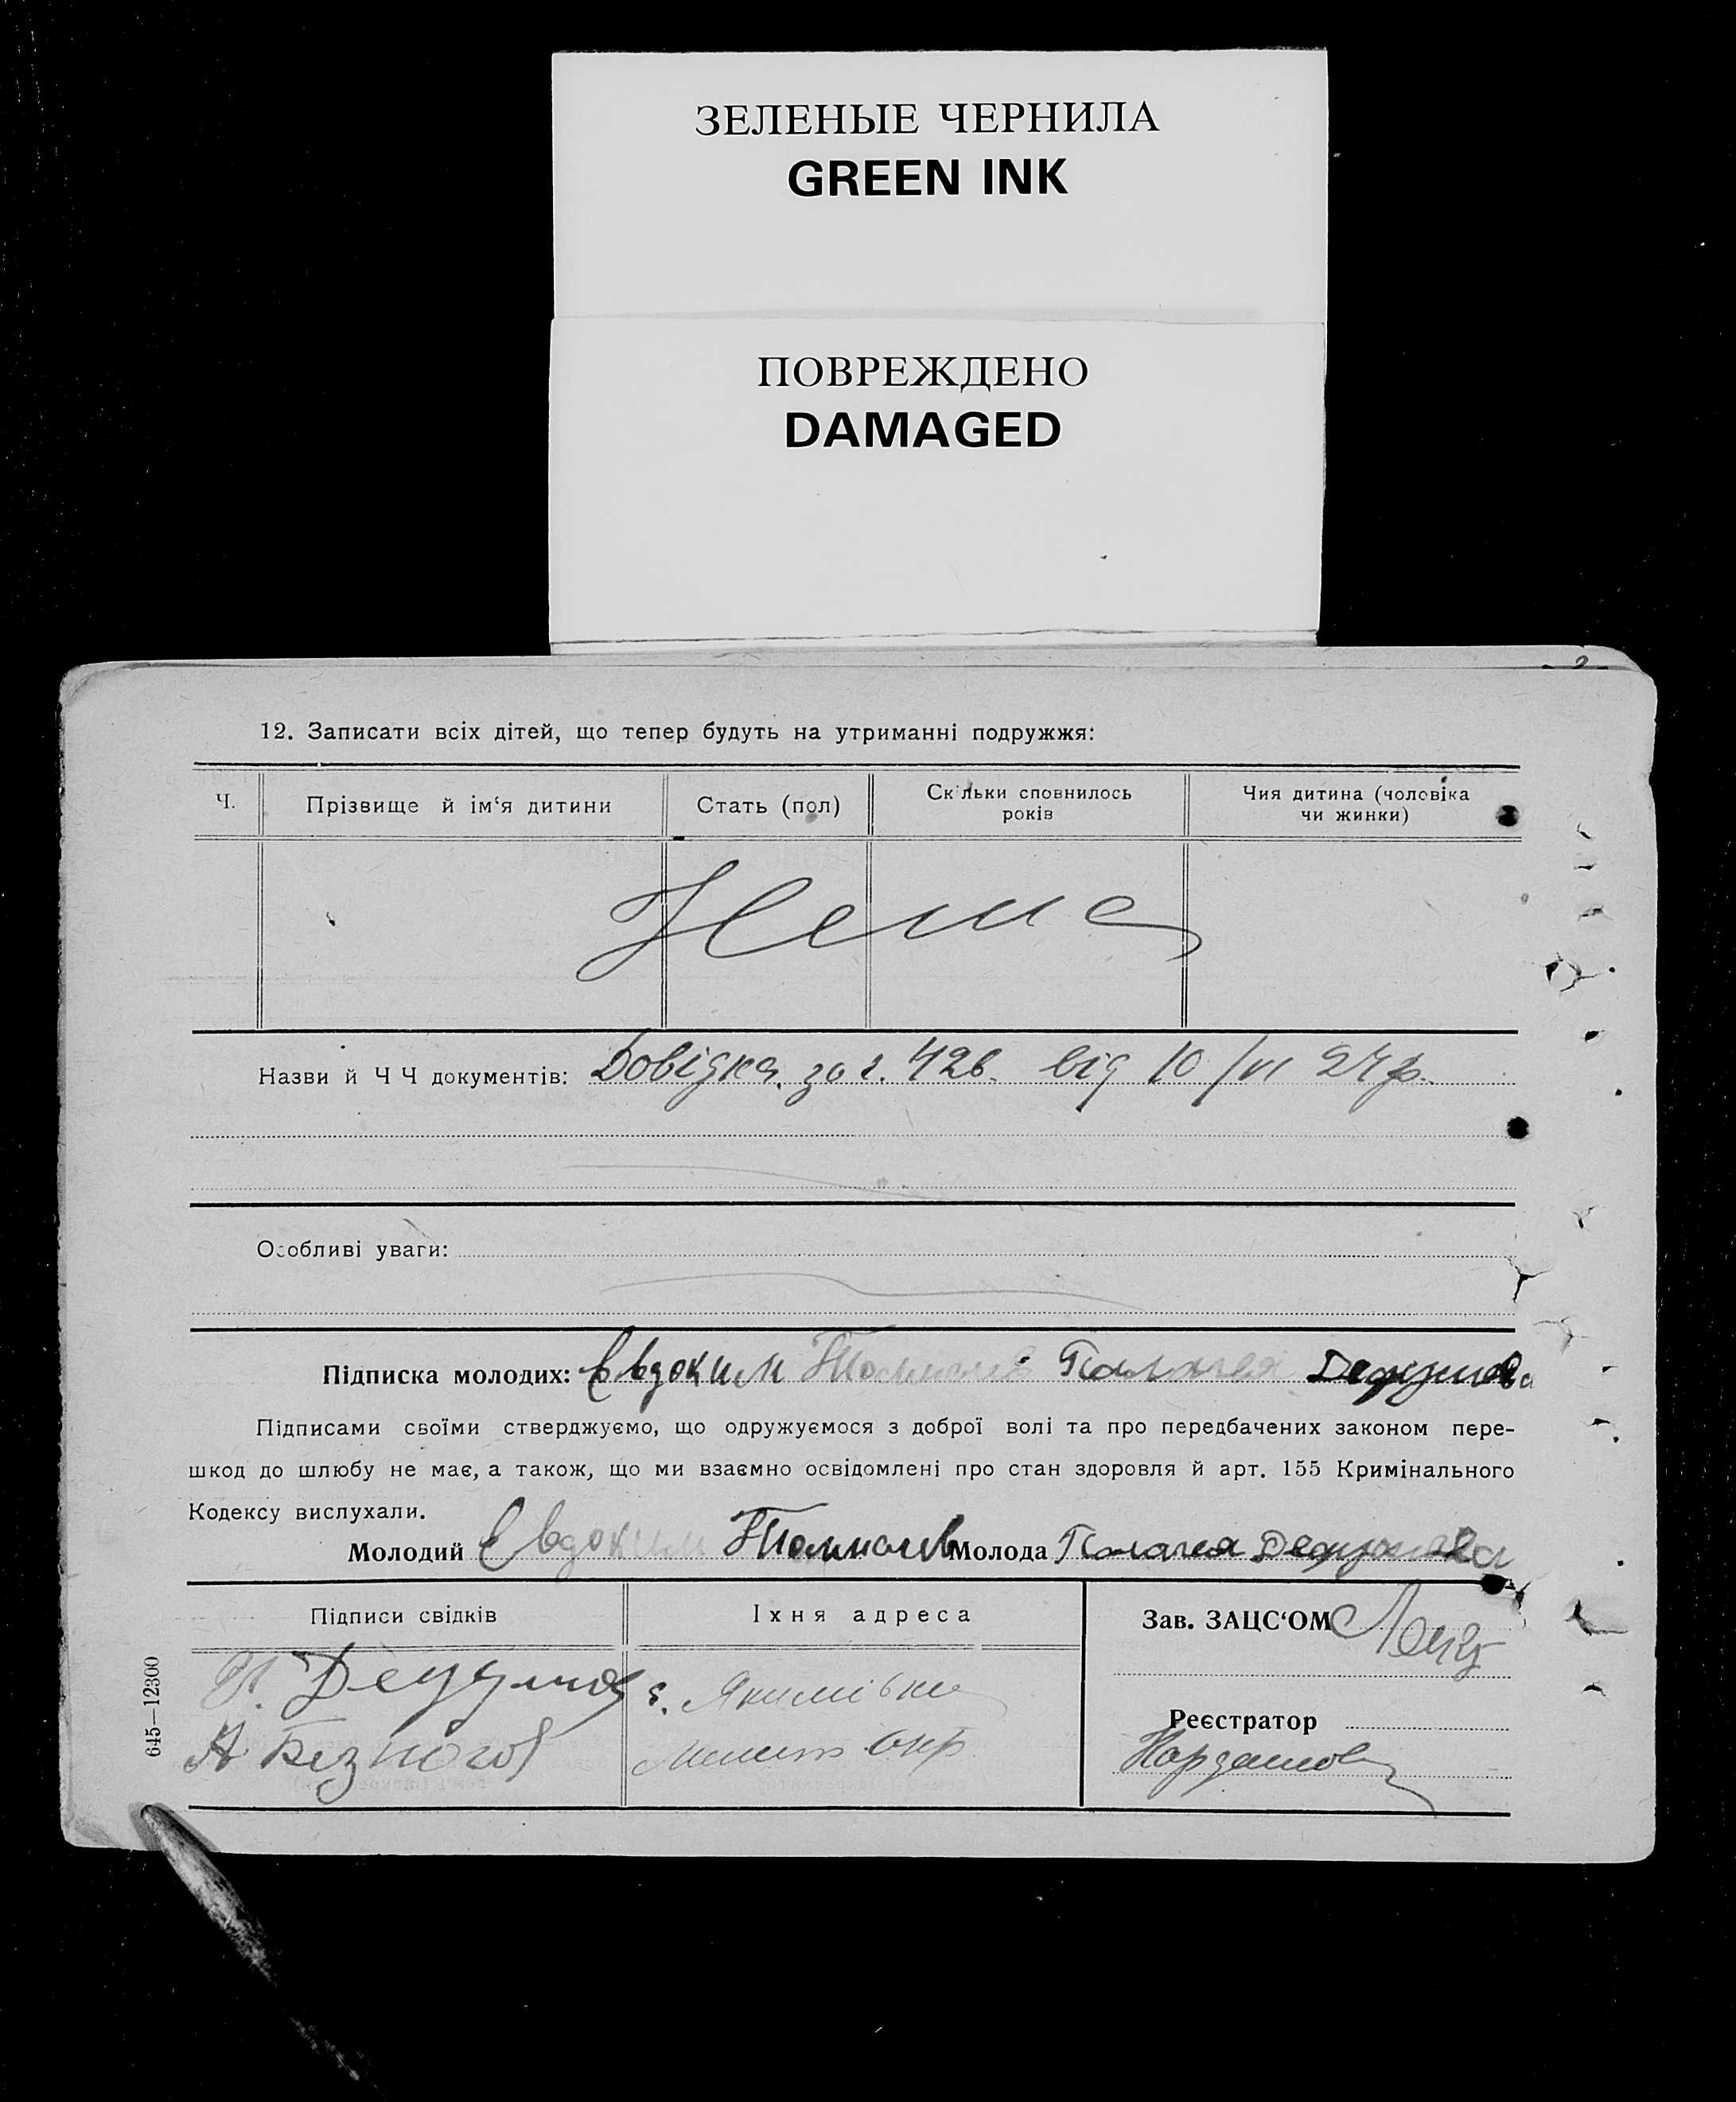 ЗЕЛЕНЫЕ ЧЕРНИЛА
GREEN INK
ПОВРЕЖДЕНО
DAMAGED
12. Записати всіх дітей, що тепер будуть на утриманні подружжя:
Ч. Прізвище й ім‘я дитини Стать (пол) Скільки сповнилось років Чия дитина (чоловіка чи жинки)
Нема
Назви й Ч Ч документів: Довідка за ч. 426 від 10/VI 27 р.
Особливі уваги:
Підписка молодих: Евдоким Палагея
Підписами своїми стверджуємо, що одружуємося з доброї волі та про передбачених законом пере-
шкод до шлюбу не має, а також, що ми взаємно освідомлені про стан здоровля й арт. 155 Кримінального
Кодексу вислухали.
Молодий Евдоким Молода Палагея
Підписи свідків Їхня адреса Зав. ЗАЦС‘ОМ
с. Якимівка
А Безногов Мелит окр
Реєстратор
645—12300